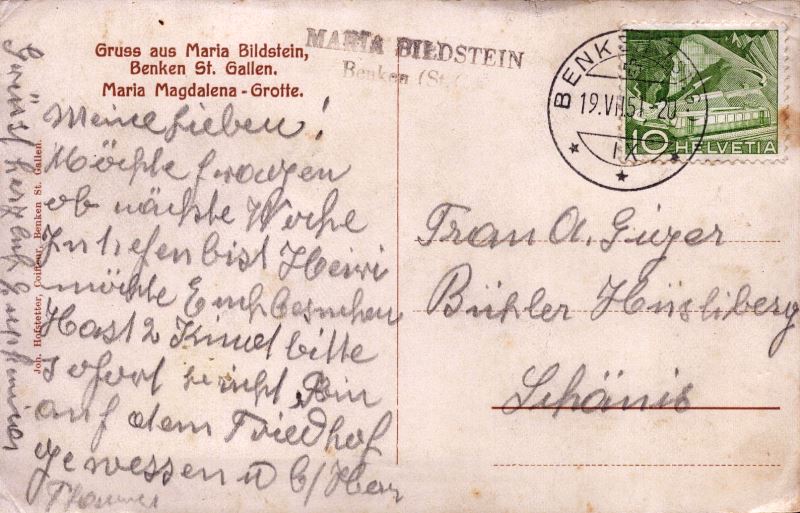 Gruss aus Maria Bildstein,
Benken St. Gallen.
Maria Magdalena - Grotte.
MARIA BILDSTEIN
Benken (St. G
BENK
19.VII.51-20
IX
10 HELVETIA
Meine Lieben!
Möchte fragen
ob nächte Woche
In trefen bist Heiri
möchte Euch besuchen
Hast 2 Kind bitte
sofort bericht Bin
auf dem Friedhof
gewessen u b/ Herr
Pfarrer
Grüsst herz
Joh. Hofstetter, Coiffeur, Benken St. Gallen.
Frau A. Giger
Bühler Hüsliberg
Schänis